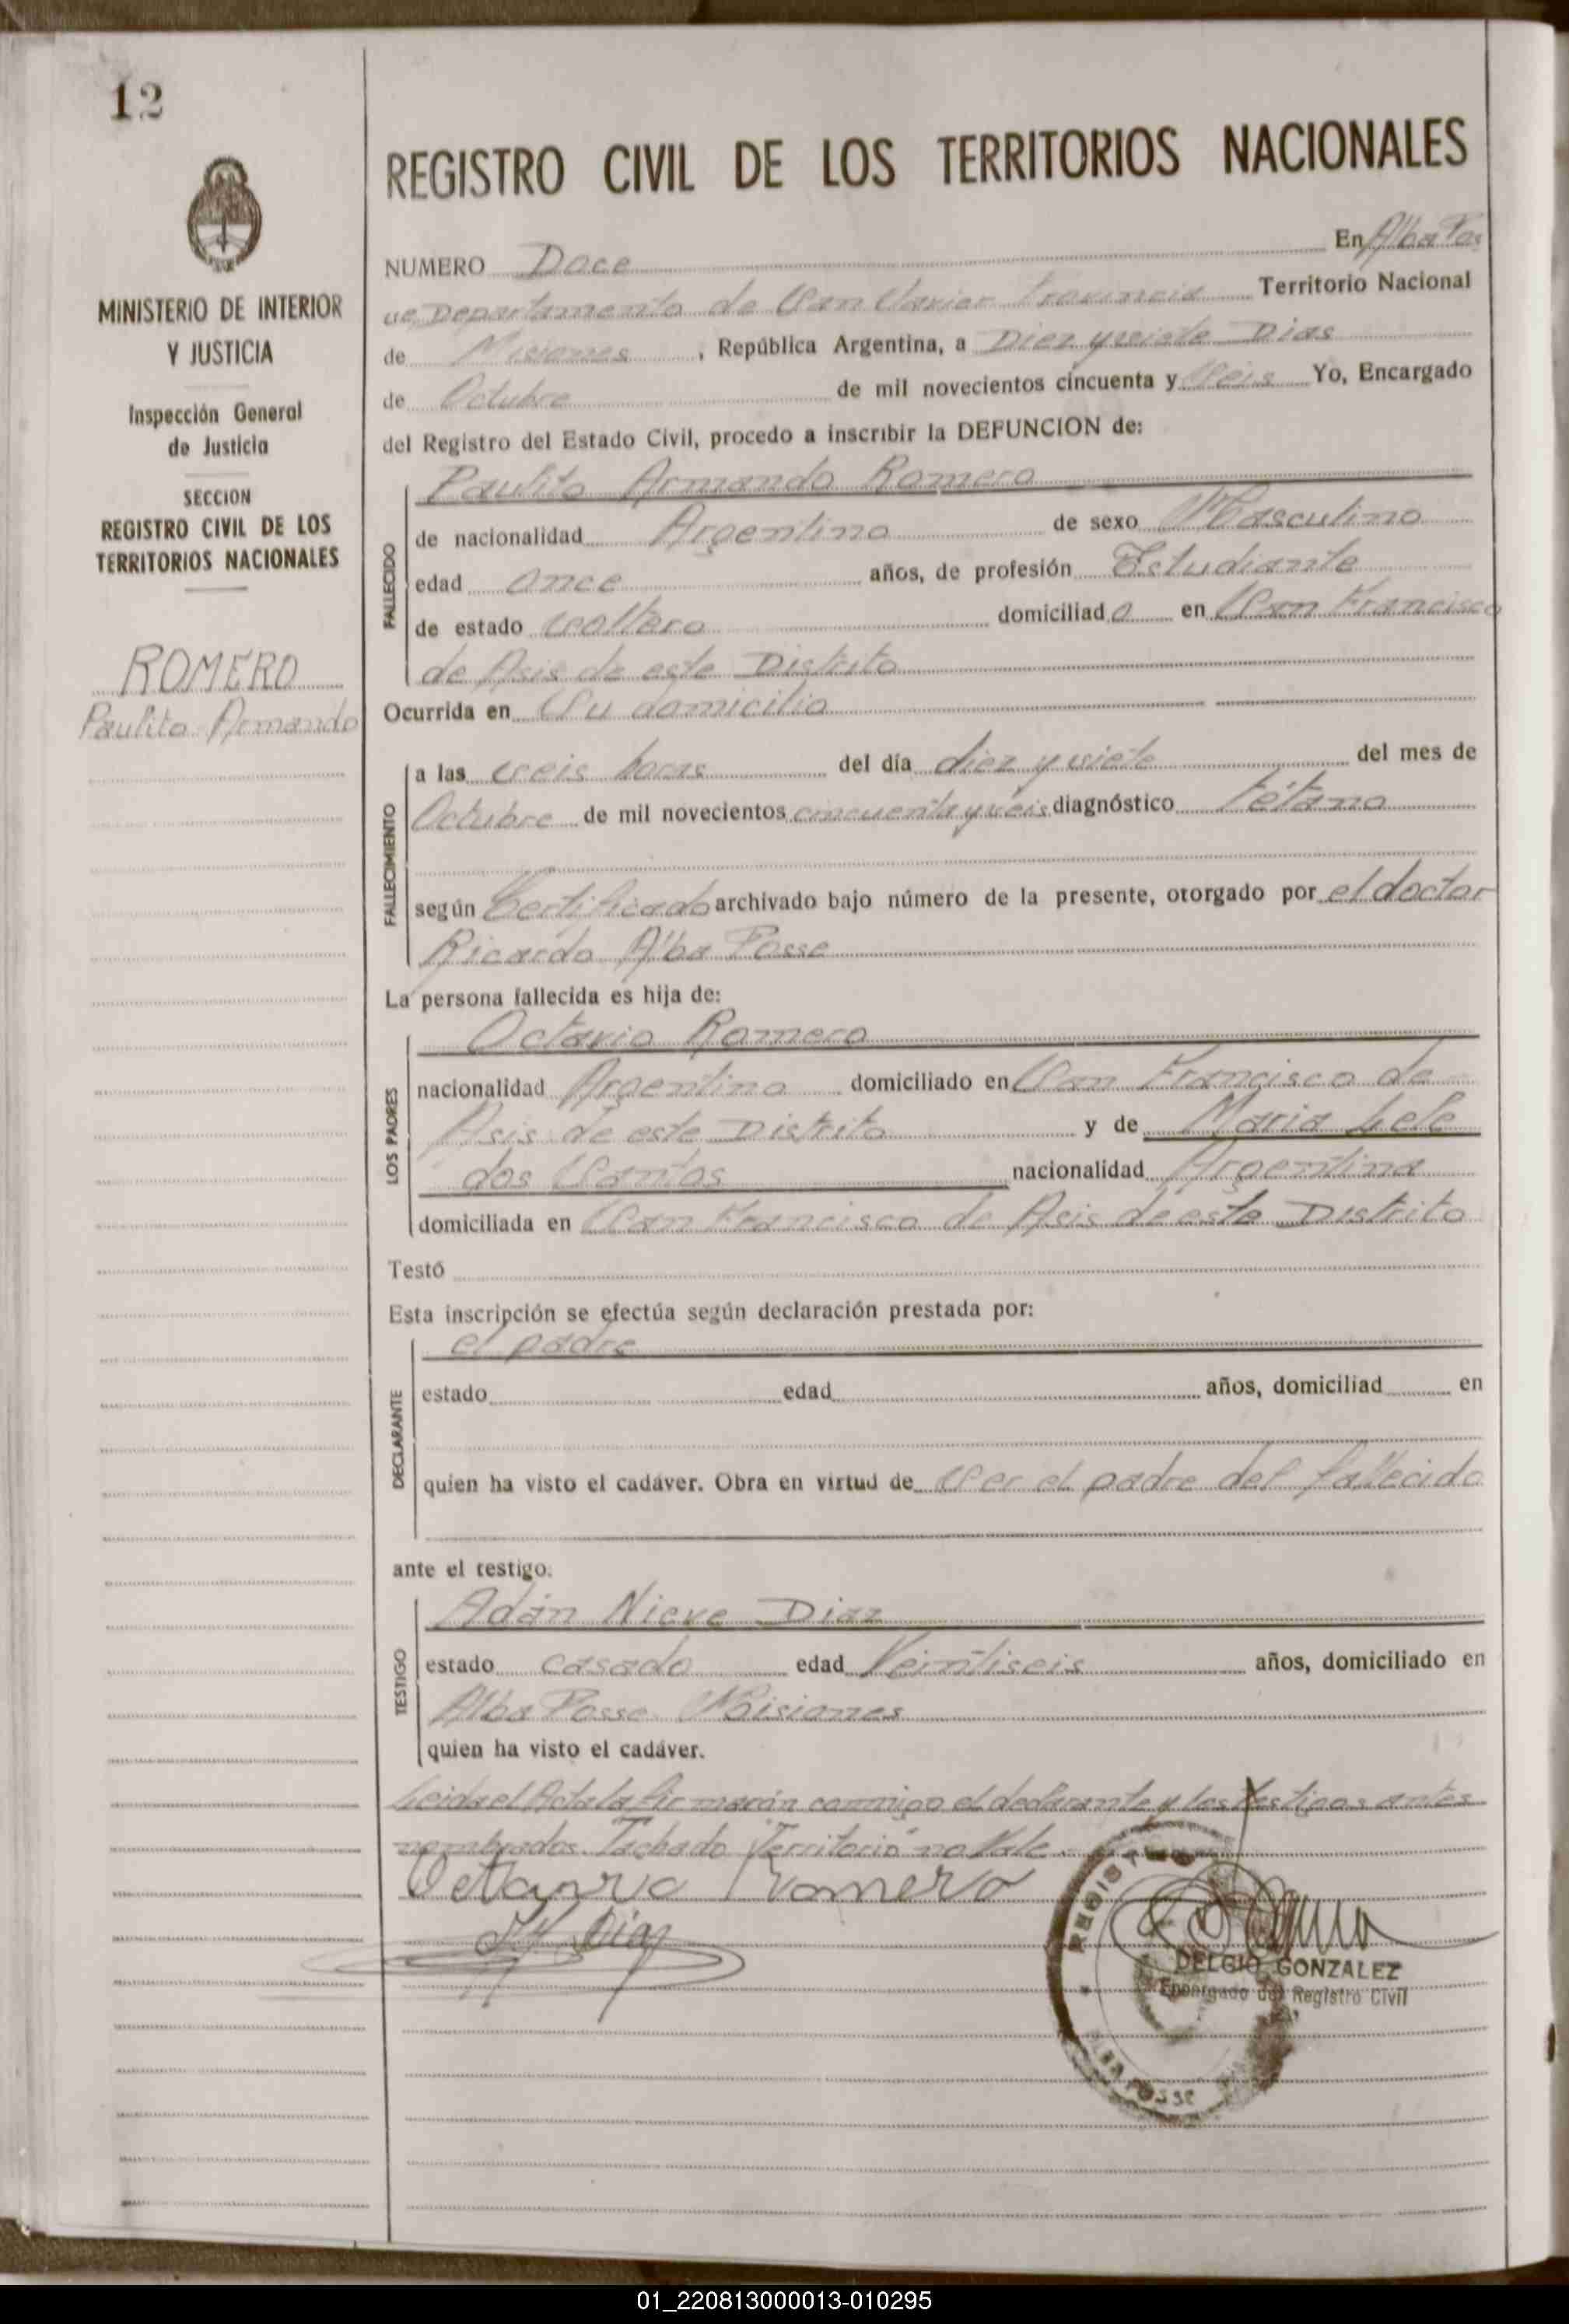 12
MINISTERIO DE INTERIOR
Y JUSTICIA
Inspección General
de Justicia
SECCION
REGISTRO CIVIL DE LOS
TERRITORIOS NACIONALES
ROMERO
Paulito Armando
REGISTRO CIVIL DE LOS TERRITORIOS NACIONALES
NUMERO Doce En Alba Pos
se, Departamento de San Javier Provincia Territorio Nacional
de Misiones, República Argentina, a Diez y siete Dias
de Octubre de mil novecientos cincuenta y Seis Yo, Encargado
del Registro del Estado Civil, procedo a inscribir la DEFUNCION de:
FALLECIDO
Paulito Armando Romero
de nacionalidad Argentino de sexo Masculino
edad once años, de profesión Estudiante
de estado soltero domiciliado en San Francisco
de Asis de este Distrito
Ocurrida en Su domicilio
FALLECIMIENTO
a las seis horas del día diez y siete del mes de
Octubre de mil novecientos cincuenta y seis diagnóstico Tétano
según Certificado archivado bajo número de la presente, otorgado por el doctor
Ricardo Alba Posse
La persona fallecida es hija de:
LOS PADRES
Octavio Romero
nacionalidad Argentino domiciliado en San Francisco de
Asis de este Distrito y de Maria
dos Santos nacionalidad Argentina
domiciliada en San Francisco de Asis de este Distrito
Testó
Esta inscripción se efectúa según declaración prestada por:
DECLARANTE
el padre
estado edad años, domiciliad en
quien ha visto el cadáver. Obra en virtud de Ser el padre del fallecido
ante el testigo.
TESTIGO
Adán Nieve Diaz
estado casado edad Veintiseis años, domiciliado en
Alba Posse Misiones
quien ha visto el cadáver.
Leida el Acta la firmarón conmigo el declarante y los testigos antes
nombrados. Tachado "Territorio" no Vale.
Octavio Romero
Diaz
REGISTRO
DELCIO GONZALEZ
Encargado del Registro Civil
ALBA POSSE
01_220813000013-010295